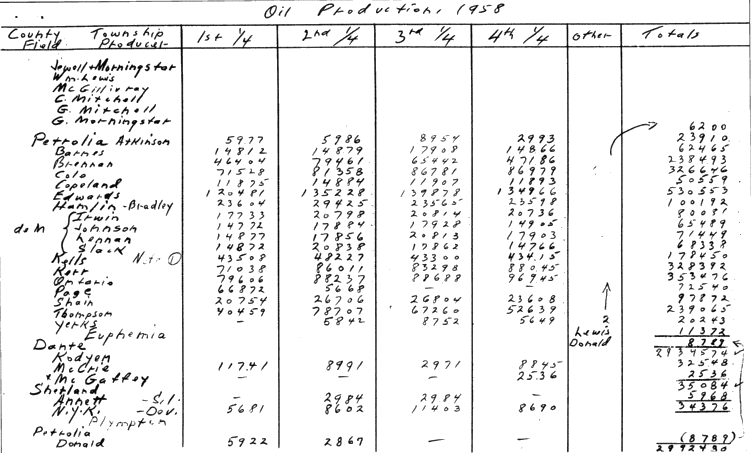 Oil Production, 1958
County Township 1st 1/4 2nd 1/4 3rd 1/4 4th 1/4 Other Totals
Field Producer
Jewell & Morningstar
Wm. Lewis
McGillivray
C. Mitchell
G. Mitchell
G. Morningstar
6200
Petrolia Atkinson 5977 5986 8954 2993 23910
Barnes 14812 14879 17908 14866 62465
Brennan 46404 79461 65442 47186 238493
Colo 71528 81358 86781 86979 326646
Copeland 11875 14884 11907 11893 50559
Edwards 120481 135228 139878 134966 530553
Hamlin - Bradley 23604 29425 23565 23598 100192
Irwin 17733 20798 20814 20736 80081
do M Johnson 14772 17884 17928 14905 65489
Kennan 14877 17856 20813 17903 71449
Slack 14872 20838 17862 14766 68338
Kells Note ① 43508 48227 43300 43415 178450
Kerr 71038 86011 83298 88045 328392
Ontario 79606 88237 88688 96945 353476
Page 66872 5668 — — 72540
Shain 20754 26706 26804 23608 97872
Thompson 40459 78707 67260 52639 239065
Yerks — 5842 8752 5649 2 20243
Euphemia Lewis 11372
Dante Donald 8789
Kodyen 2934574
McCrie 11741 8991 2971 8845 32548
& McGaffey — — — 2536 2536
Shetland 35084
Annett - Sil. — 2984 2984 — 5968
N.Y.K. - Dev. 5681 8602 11403 8690 34376
Plympton
Petrolia (8789)
Donald 5922 2867 — — 2992430